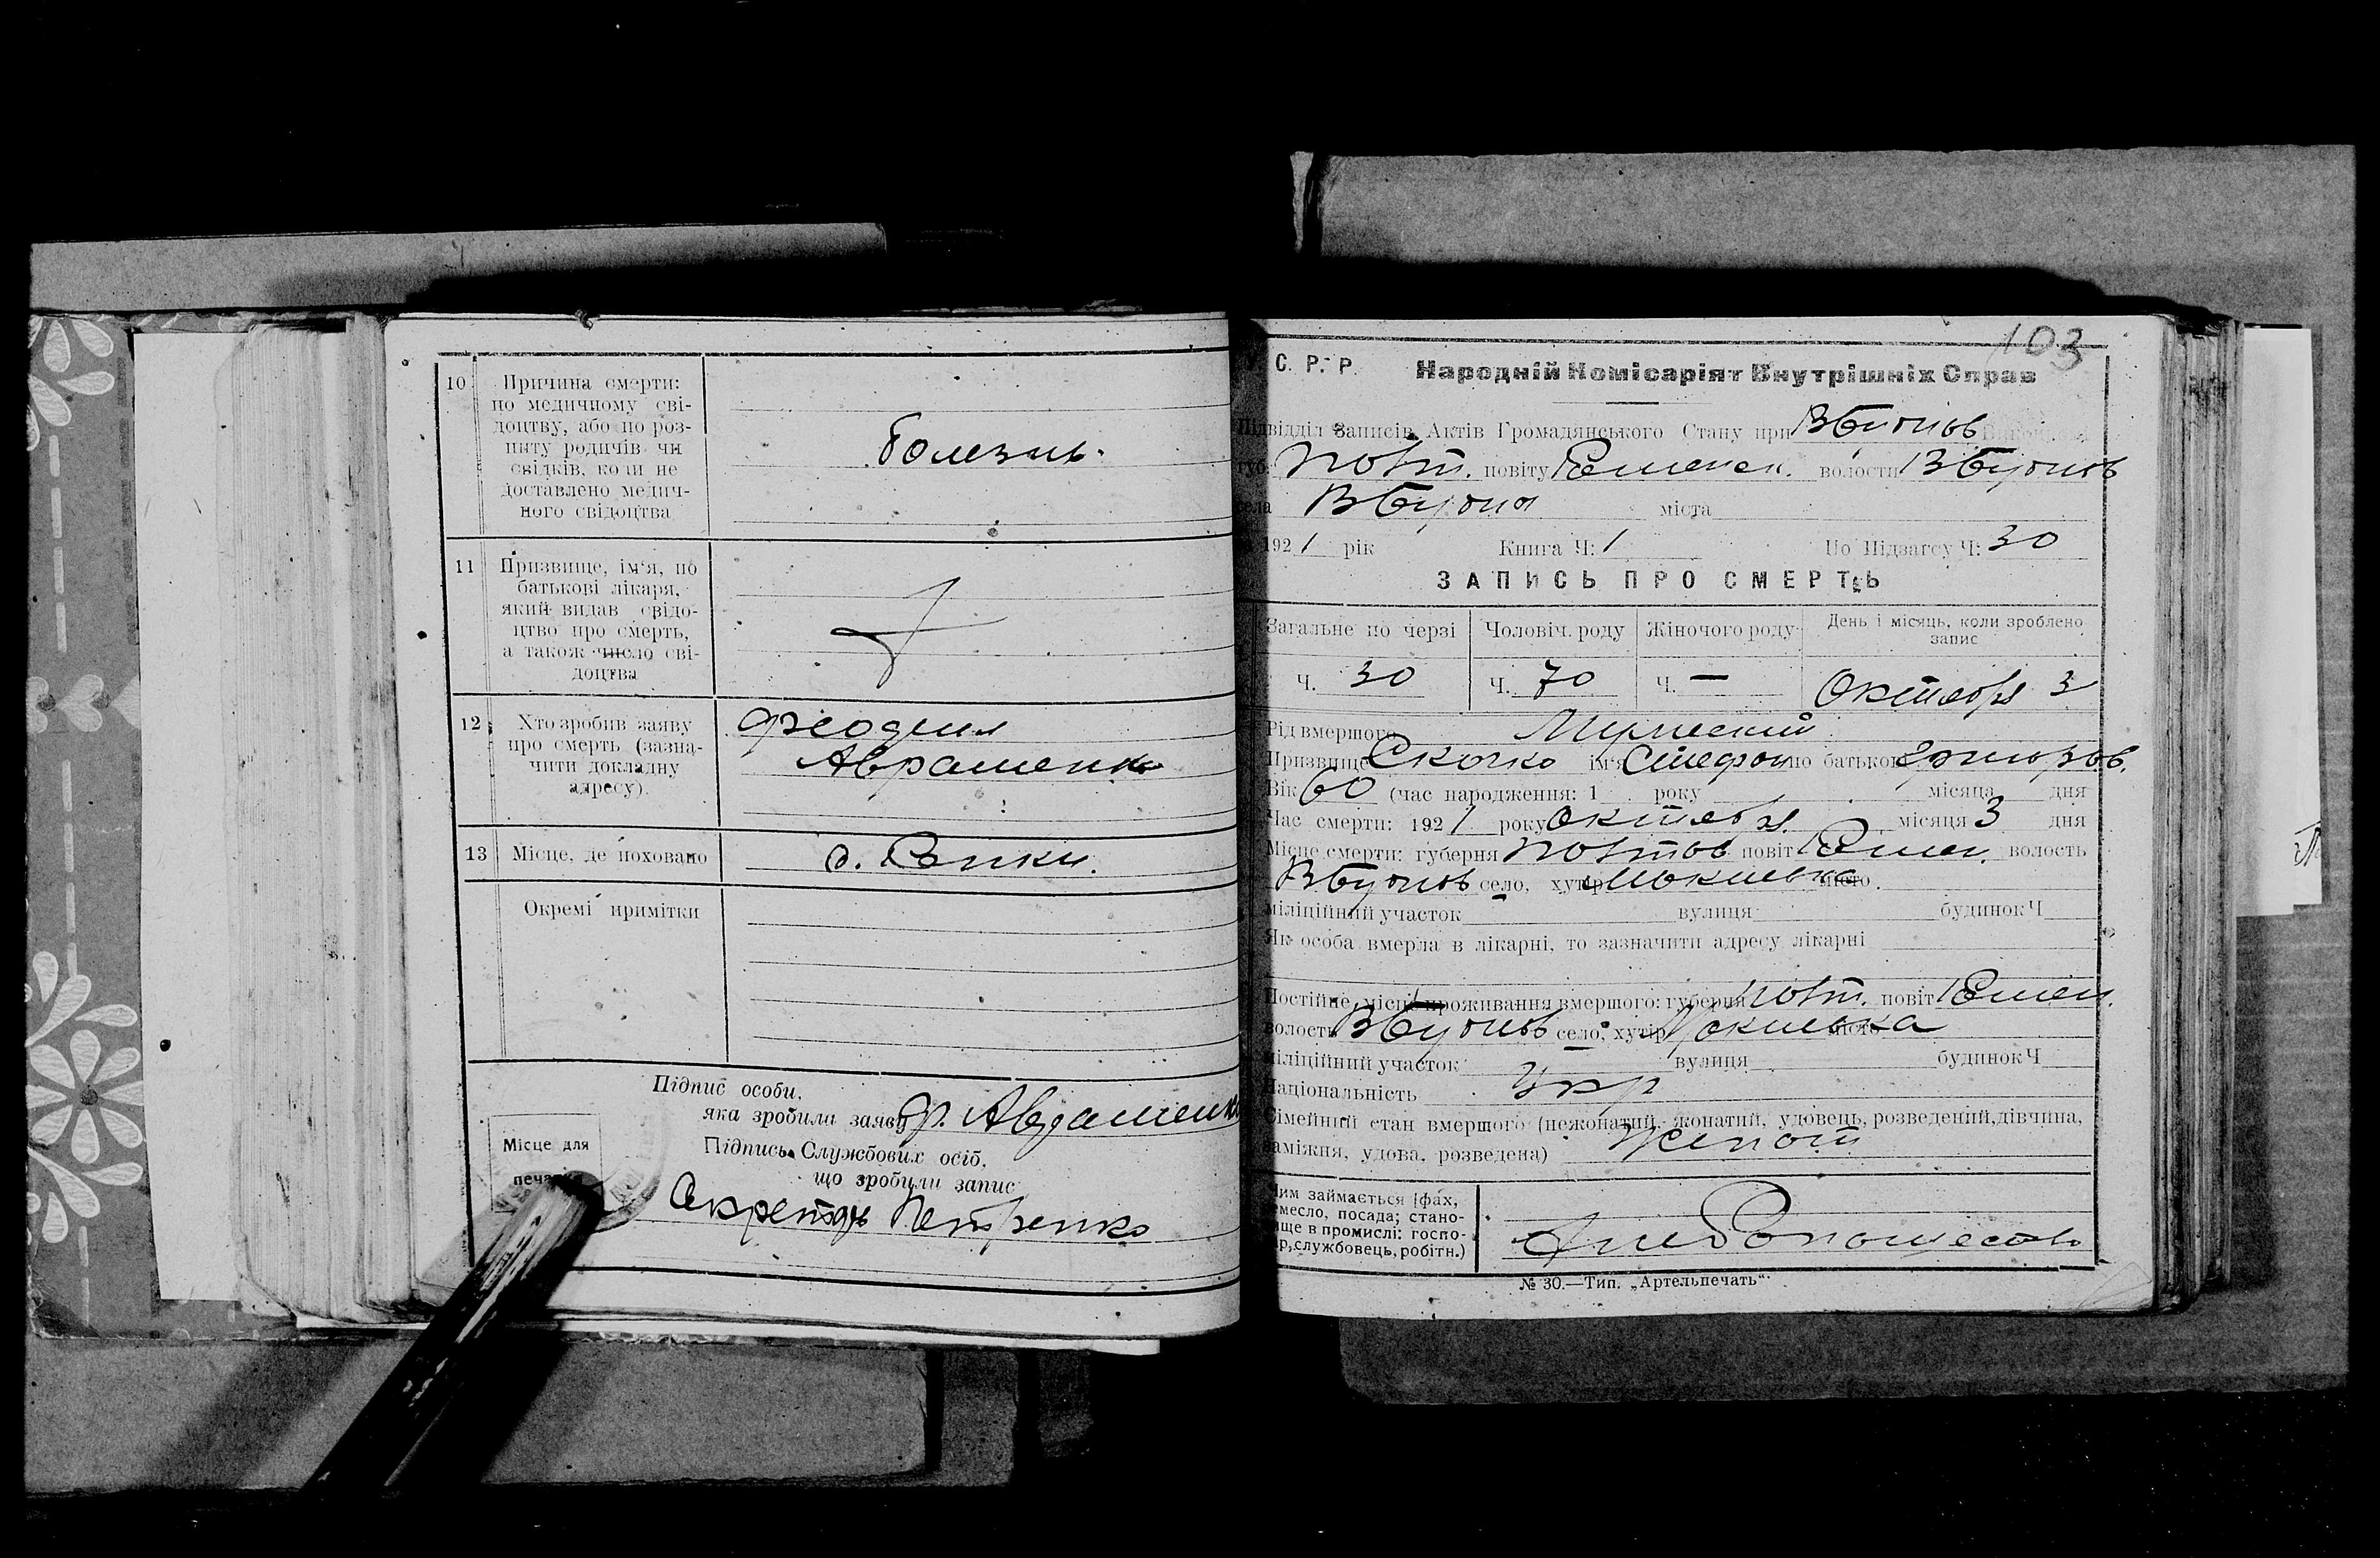 10 Причина смерти:
по медичному сві-
доцтву, або по роз-
питу родичів чи
свідків, коли не
доставлено медич-
ного свідоцтва
Болезнь.
11 Призвище, ім'я, по
батькові лікаря,
який видав свідо-
цтво про смерть,
а також число сві-
доцтва
12 Хто зробив заяву
про смерть (зазна-
чити докладну
адресу).
Авраменко
13 Місце, де поховано
Окремі примітки
Підпис особи,
яка зробила заяву Ф. Авраменко
Підпись Службових осіб,
що зробили запис
Секретарь Петренко
Місце для
печа
103
С. Р. Р. Народній Комісаріят Внутрішніх Справ
Підвідділ Записів Актів Громадянського Стану при
губ. Полт. повіту Ромен. волости
села міста
1921 рік Книга Ч: 1 По Підзагсу Ч: 30
ЗАПИСЬ ПРО СМЕРТЬ
Загальне по черзі Чоловіч. роду Жіночого роду День і місяць, коли зроблено
запис
Ч. 30 Ч. 70 Ч. — Октября 3
Рід вмершого Мужеский
Призвище Скочко ім'я Стефан по батькові
Вік 60 (час народження: 1 року місяця дня
Час смерти: 1921 року Октября місяця 3 дня
Місце смерти: губерня Полтов повіт Ромен. волость
село, хутір місто
міліційний участок вулиця будинок Ч
Як особа вмерла в лікарні, то зазначити адресу лікарні
Постійне місце проживання вмершого: губерня Полт. повіт Ромен.
волость село, хутір місто
міліційний участок вулиця будинок Ч
Національність Укр
Сімейний стан вмершого (нежонатий, жонатий, удовець, розведений, дівчина,
заміжня, удова, розведена) Женат
Чим займається (фах,
ремесло, посада; стано-
вище в промислі: госпо-
дар, службовець, робітн.)
Хлебопашество
№ 30.—Тип. „Артельпечать“